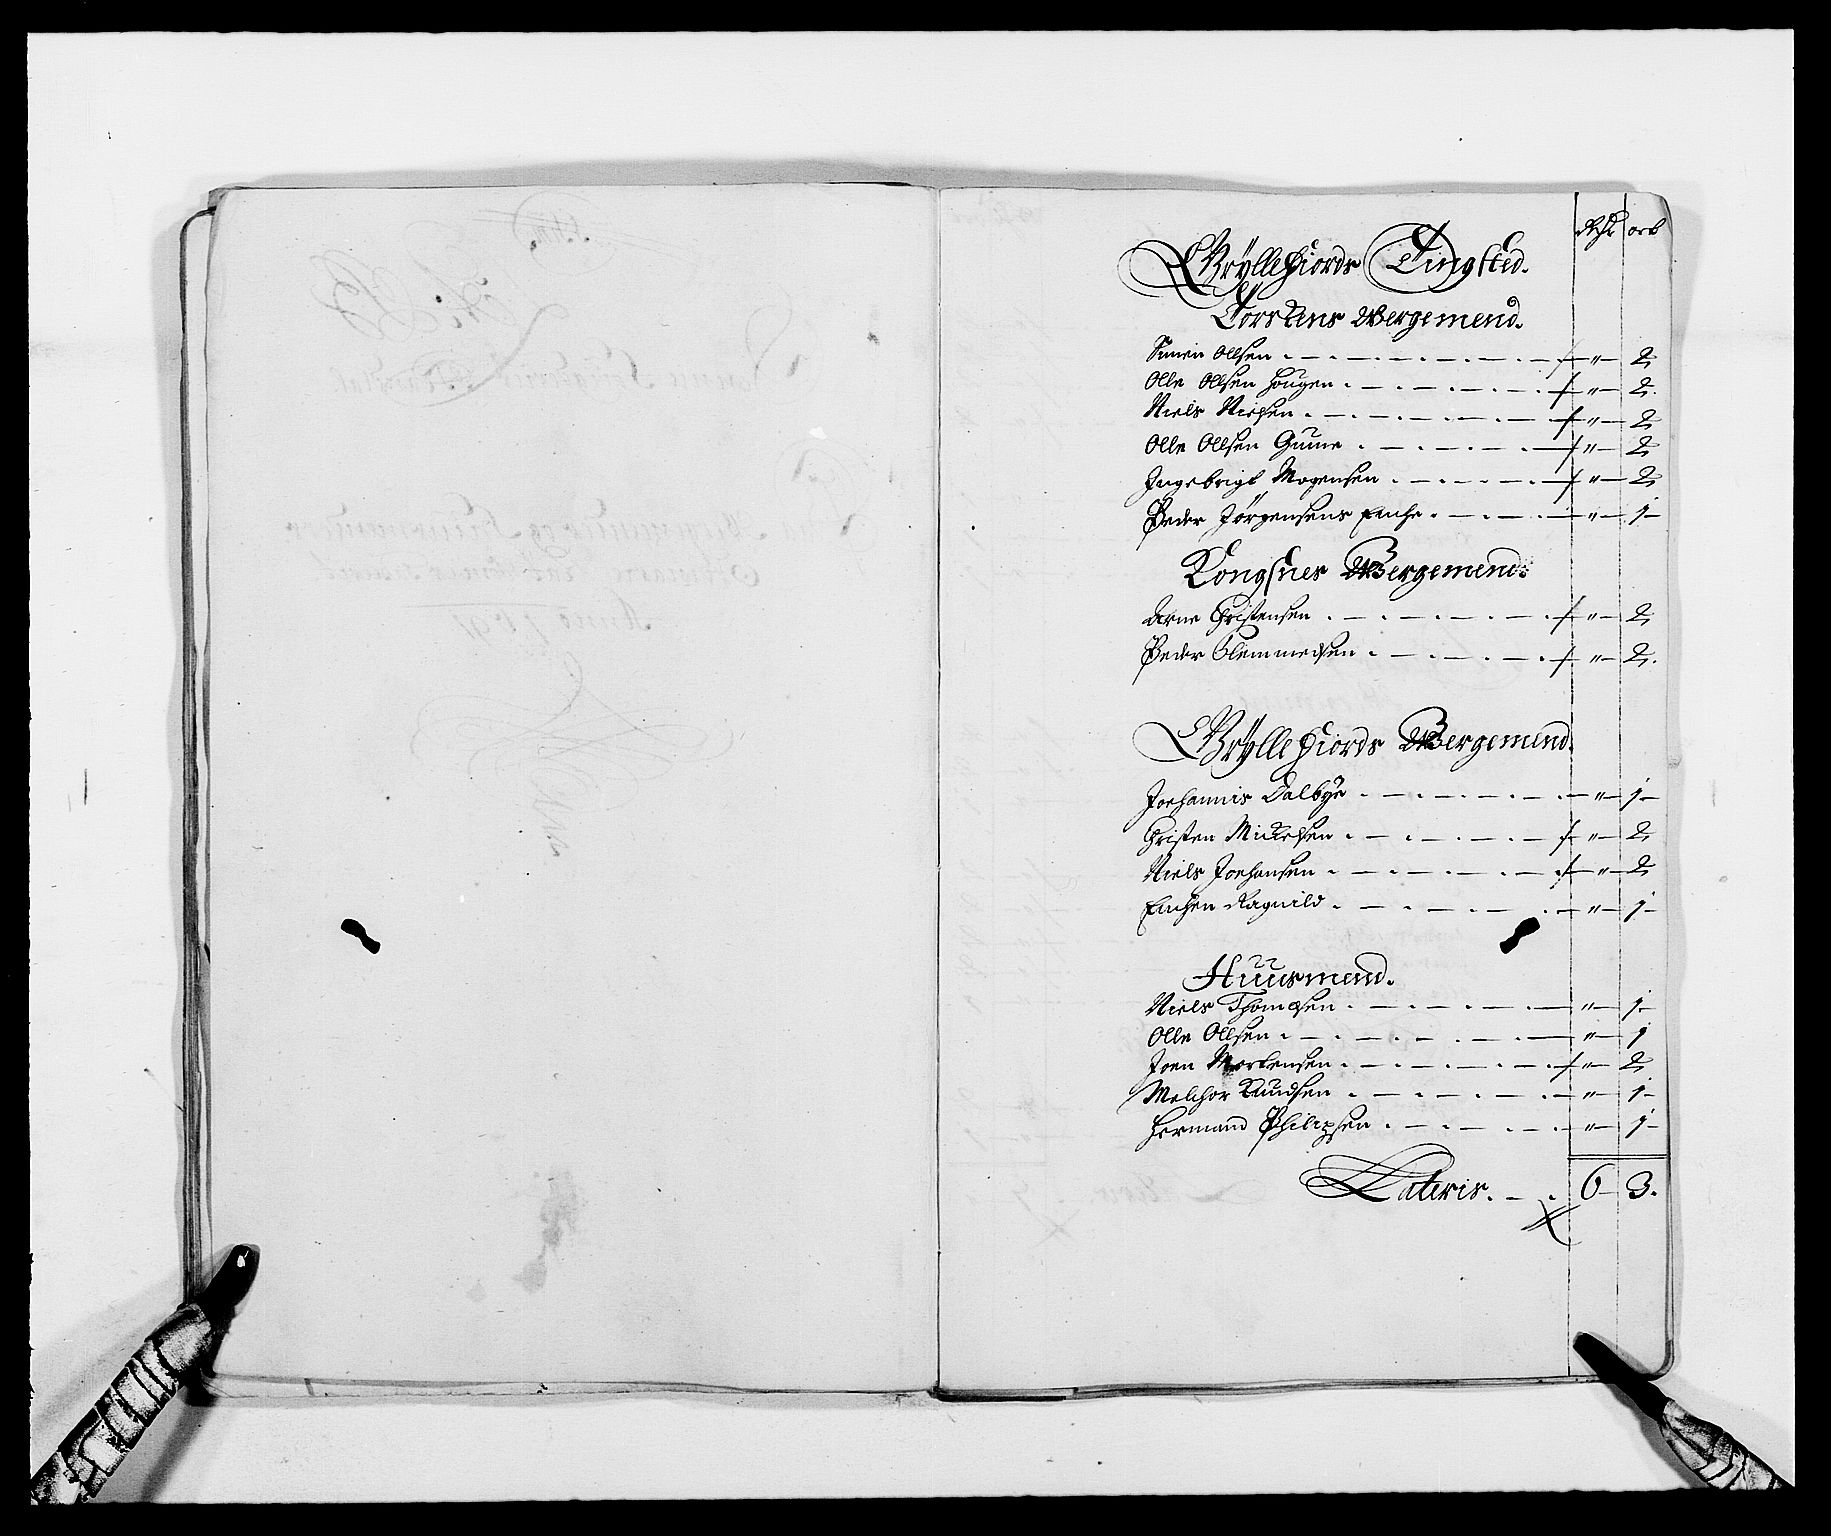 Rdr ort
Gryllefiords Tingsted.
Torskens Bergemend.
Simen Ollsen . — . — " — 2
Olle Ollsen Hougen . — . — " — 2.
Niels Nielsen . — . — " — 2
Olle Ollsen Gunne . — . — " — 2
Ingebrigt Mogensen . — . — " — 2
Peder Jørgensens Enche . — . — " — 1 —
Kongsnes Bergemend.
Arne Christensen . — . — " — 2
Peder Clemmedsen . — . — " — 2.
Gryllefiords Bergemend.
Joehannis Dalbye . — . — " — 1 —
Christen Mickelsen . — . — " — 2
Niels Joehansen . — . — " — 2
Enchen Ragnild . — . — " — 1 —
Huusmend.
Niels Thomesen . — . — " — 1 —
Olle Ollsen . — . — " — 1
Joen Mortensen . — . — " — 2
Melchor Knudsen . — . — " — 1 —
Hermand Philipsen . — . — " — 1 —
Lateris . — . 6 — 3.